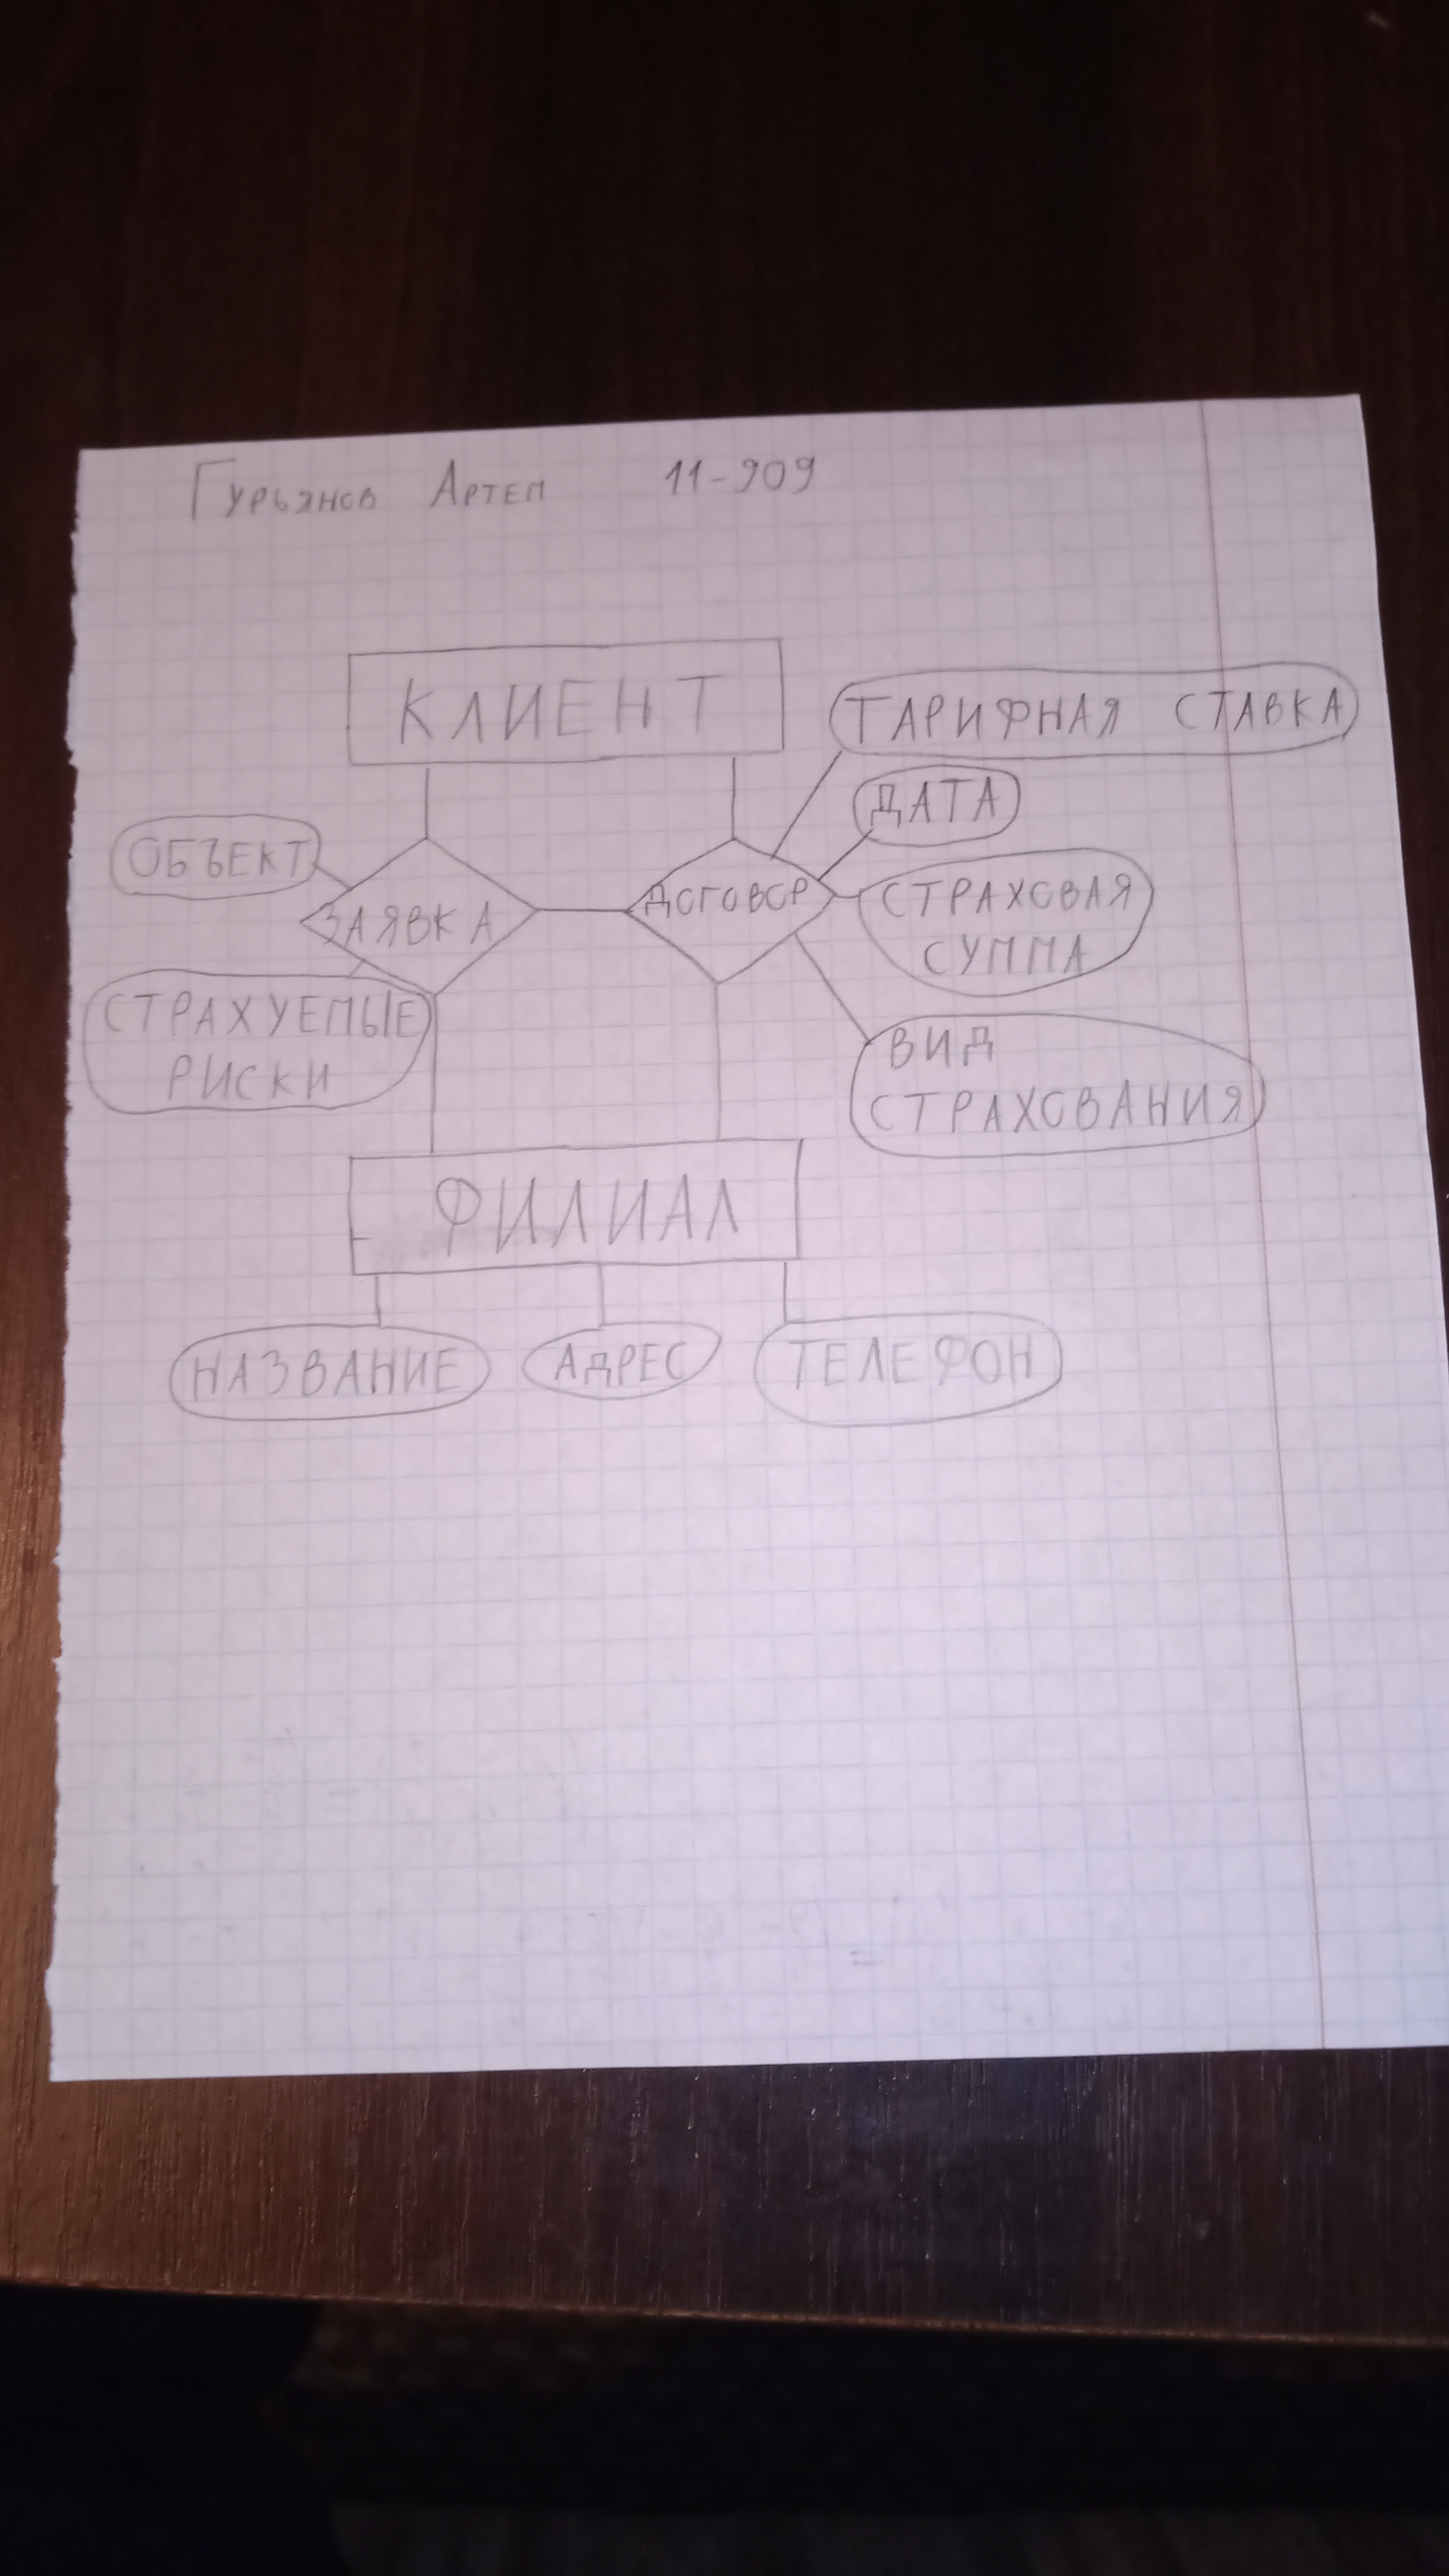 Гурьянов Артем 11-909
КЛИЕНТ
ТАРИФНАЯ СТАВКА
ДАТА
ОБЪЕКТ
ЗАЯВКА
ДОГОВОР
СТРАХОВАЯ
СУММА
СТРАХУЕМЫЕ
РИСКИ
ВИД
СТРАХОВАНИЯ
ФИЛИАЛ
НАЗВАНИЕ
АДРЕС
ТЕЛЕФОН